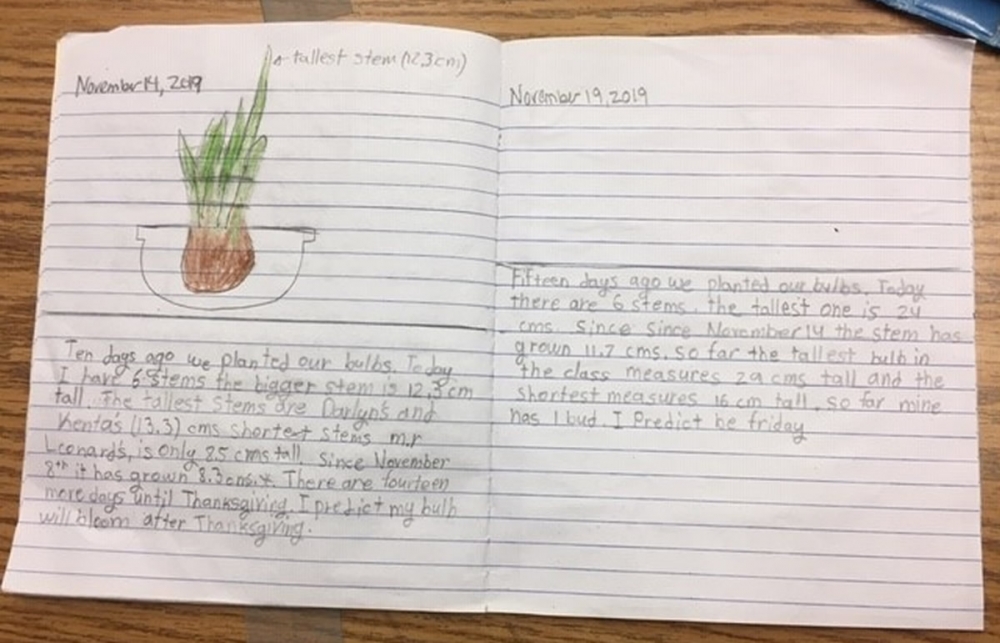 tallest stem (12,3cm)
November 14, 2019
Ten days ago we planted our bulbs. Today
I have 6 stems the bigger stem is 12,3 cm
tall. The tallest stems are Darlyn's and
Kenta's (13,3) cms shortest stems m.r
Leonard's, is only 8.5 cms tall. Since November
8th it has grown 8.3 cms. There are fourteen
more days until Thanksgiving. I predict my bulb
will bloom after Thanksgiving.
November 19, 2019
Fifteen days ago we planted our bulbs. Today
there are 6 stems. the tallest one is 24
cms. Since Since November 14 the stem has
grown 11.7 cms. so far the tallest bulb in
the class measures 29 cms tall and the
shortest measures 16 cm tall. so far mine
has 1 bud. I Predict be friday